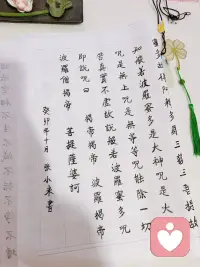 多羅三藐三菩提故
知般若波羅蜜多是大神咒是大
咒是無上咒是無等等咒能除一切
苦真實不虛故說般若波羅蜜多咒
即說咒曰 揭帝揭帝 波羅揭帝
波羅僧揭帝 菩提薩婆訶
癸卯年十月 张小来書